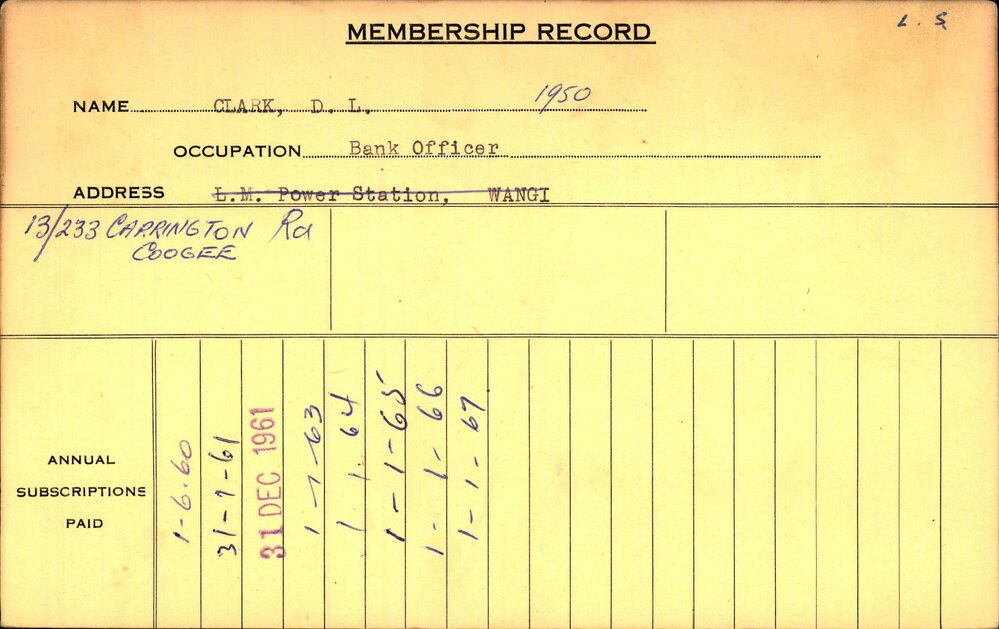 L. S
MEMBERSHIP RECORD
NAME CLARK, D. L. 1950
OCCUPATION Bank Officer
ADDRESS L.M. Power Station, WANGI
13/233 CARRINGTON Rd
COOGEE
ANNUAL
SUBSCRIPTIONS
PAID
1-6-60
31-1-61
31 DEC 1961
1-1-63
1 1 64
1-1-65
1-1-66
1-1-67